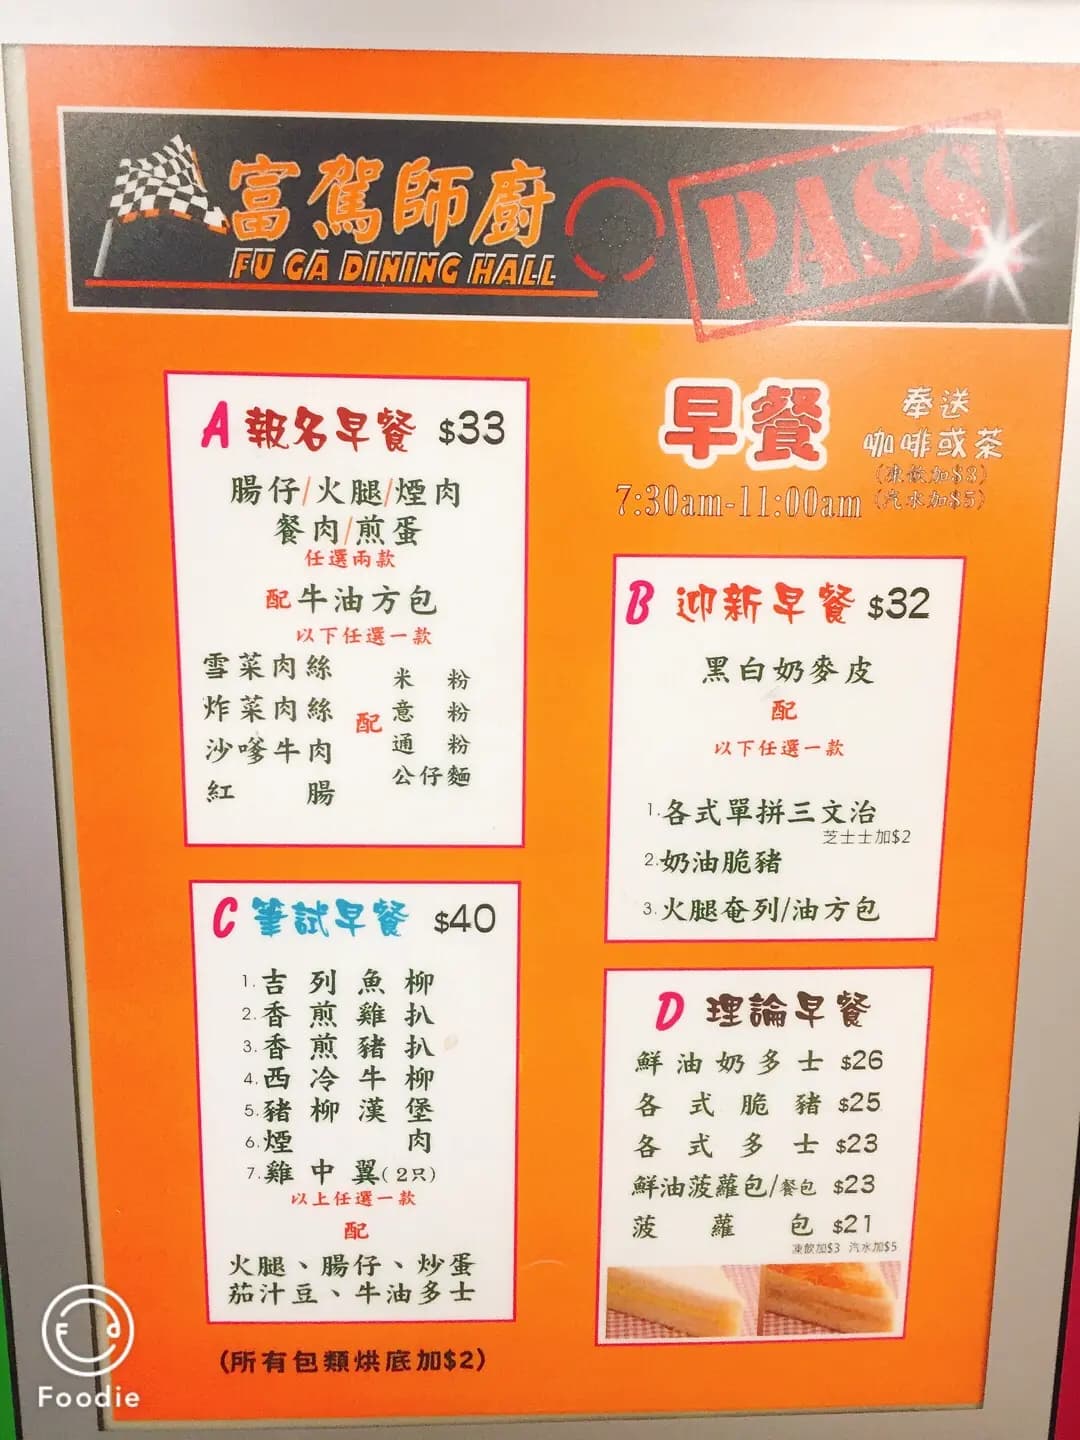 富駕師廚
FU GA DINING HALL
PASS
A 報名早餐 $33
腸仔/火腿/煙肉
餐肉/煎蛋
任選兩款
配 牛油方包
以下任選一款
雪菜肉絲
炸菜肉絲
沙嗲牛肉
紅腸
配
米粉
意粉
通粉
公仔麵
早餐
7:30am-11:00am
奉送
咖啡或茶
(凍飲加$3)
(汽水加$5)
B 迎新早餐 $32
黑白奶麥皮
配
以下任選一款
1.各式單拼三文治
芝士士加$2
2.奶油脆豬
3.火腿奄列/油方包
C 筆試早餐 $40
1.吉列魚柳
2.香煎雞扒
3.香煎豬扒
4.西冷牛柳
5.豬柳漢堡
6.煙肉
7.雞中翼(2只)
以上任選一款
配
火腿、腸仔、炒蛋
茄汁豆、牛油多士
D 理論早餐
鮮油奶多士 $26
各式脆豬 $25
各式多士 $23
鮮油菠蘿包/餐包 $23
菠蘿包 $21
凍飲加$3 汽水加$5
(所有包類烘底加$2)
Foodie